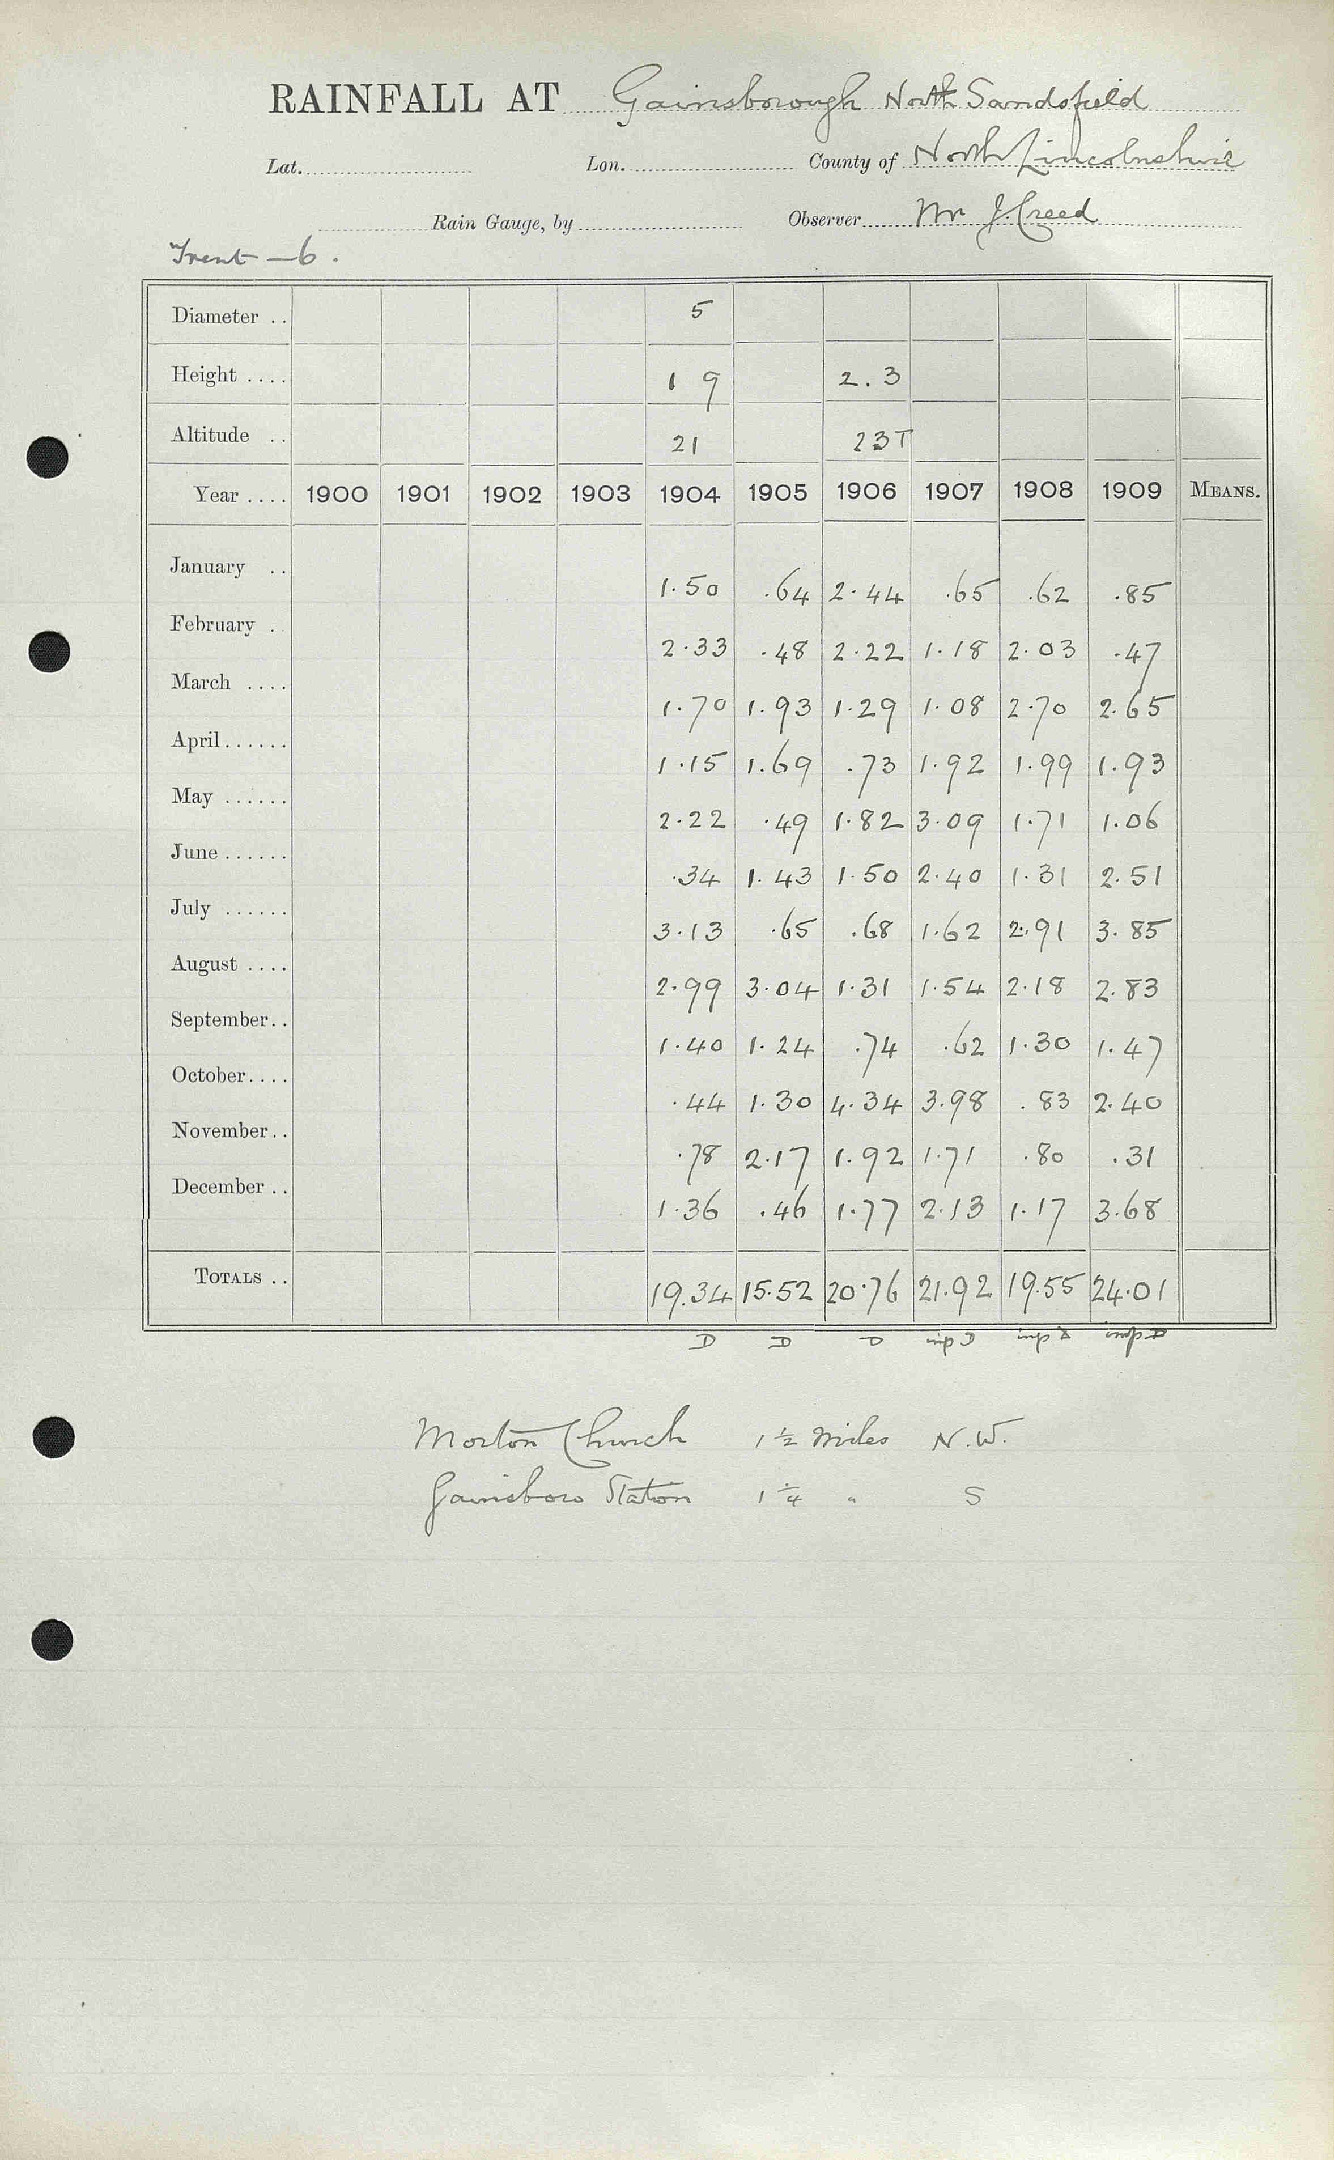 RAINFALL AT Gainsborough North Sandsfield
Lat. Lon. County of North Lincolnshire
Rain Gauge, by Observer Mr J. Creed
Trent — 6.
Diameter .. 5
Height .... 1 9 2.3
Altitude .. 21 23T
Year .... 1900 1901 1902 1903 1904 1905 1906 1907 1908 1909 MEANS.
January .. 1.50 .64 2.44 .65 .62 .85
February . 2.33 .48 2.22 1.18 2.03 .47
March .... 1.70 1.93 1.29 1.08 2.70 2.65
April...... 1.15 1.69 .73 1.92 1.99 1.93
May ...... 2.22 .49 1.82 3.09 1.71 1.06
June ...... .34 1.43 1.50 2.40 1.31 2.51
July ...... 3.13 .65 .68 1.62 2.91 3.85
August .... 2.99 3.04 1.31 1.54 2.18 2.83
September.. 1.40 1.24 .74 .62 1.30 1.47
October.... .44 1.30 4.34 3.98 .83 2.40
November.. .78 2.17 1.92 1.71 .80 .31
December .. 1.36 .46 1.77 2.13 1.17 3.68
TOTALS .. 19.34 15.52 20.76 21.92 19.55 24.01
D D D inp D inp D inp D
Morton Church 1½ miles N.W.
Gainsboro Station 1¼ " S